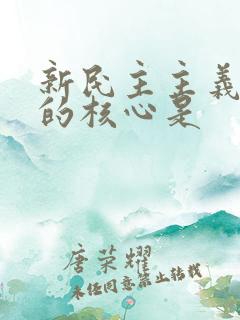 新民主主义
的核心是
唐荣耀
未经同意禁止转载